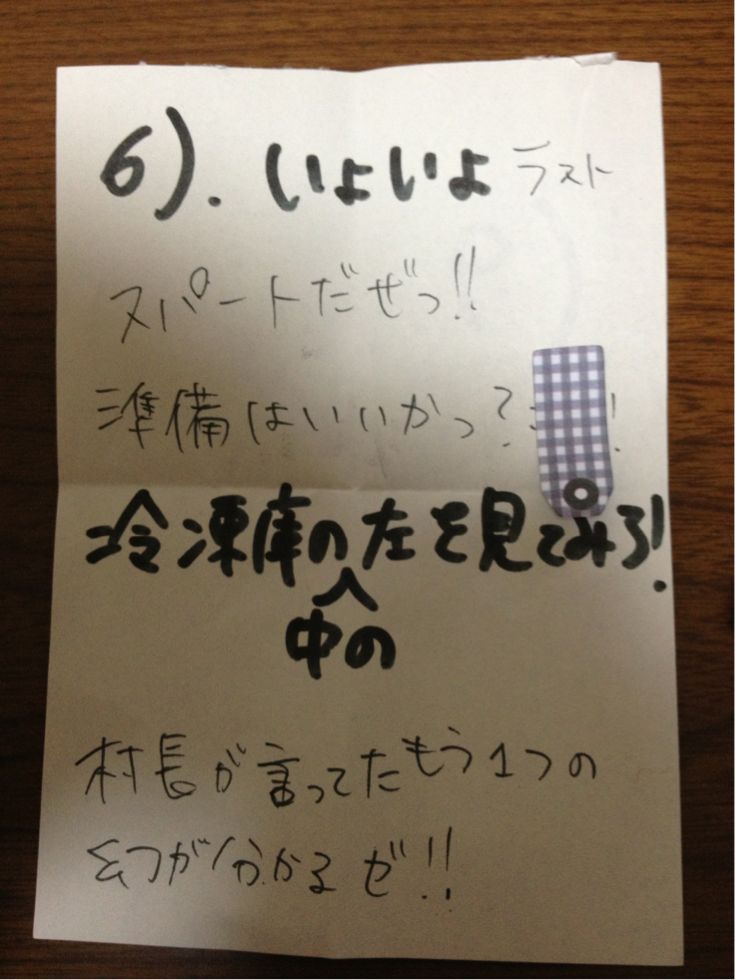 6). いよいよラスト
スパートだぜっ!!
準備はいいかっ? !
冷凍庫の左を見てみろ!
中の
村長が言ってたもう1つの
幻が分かるゼ!!